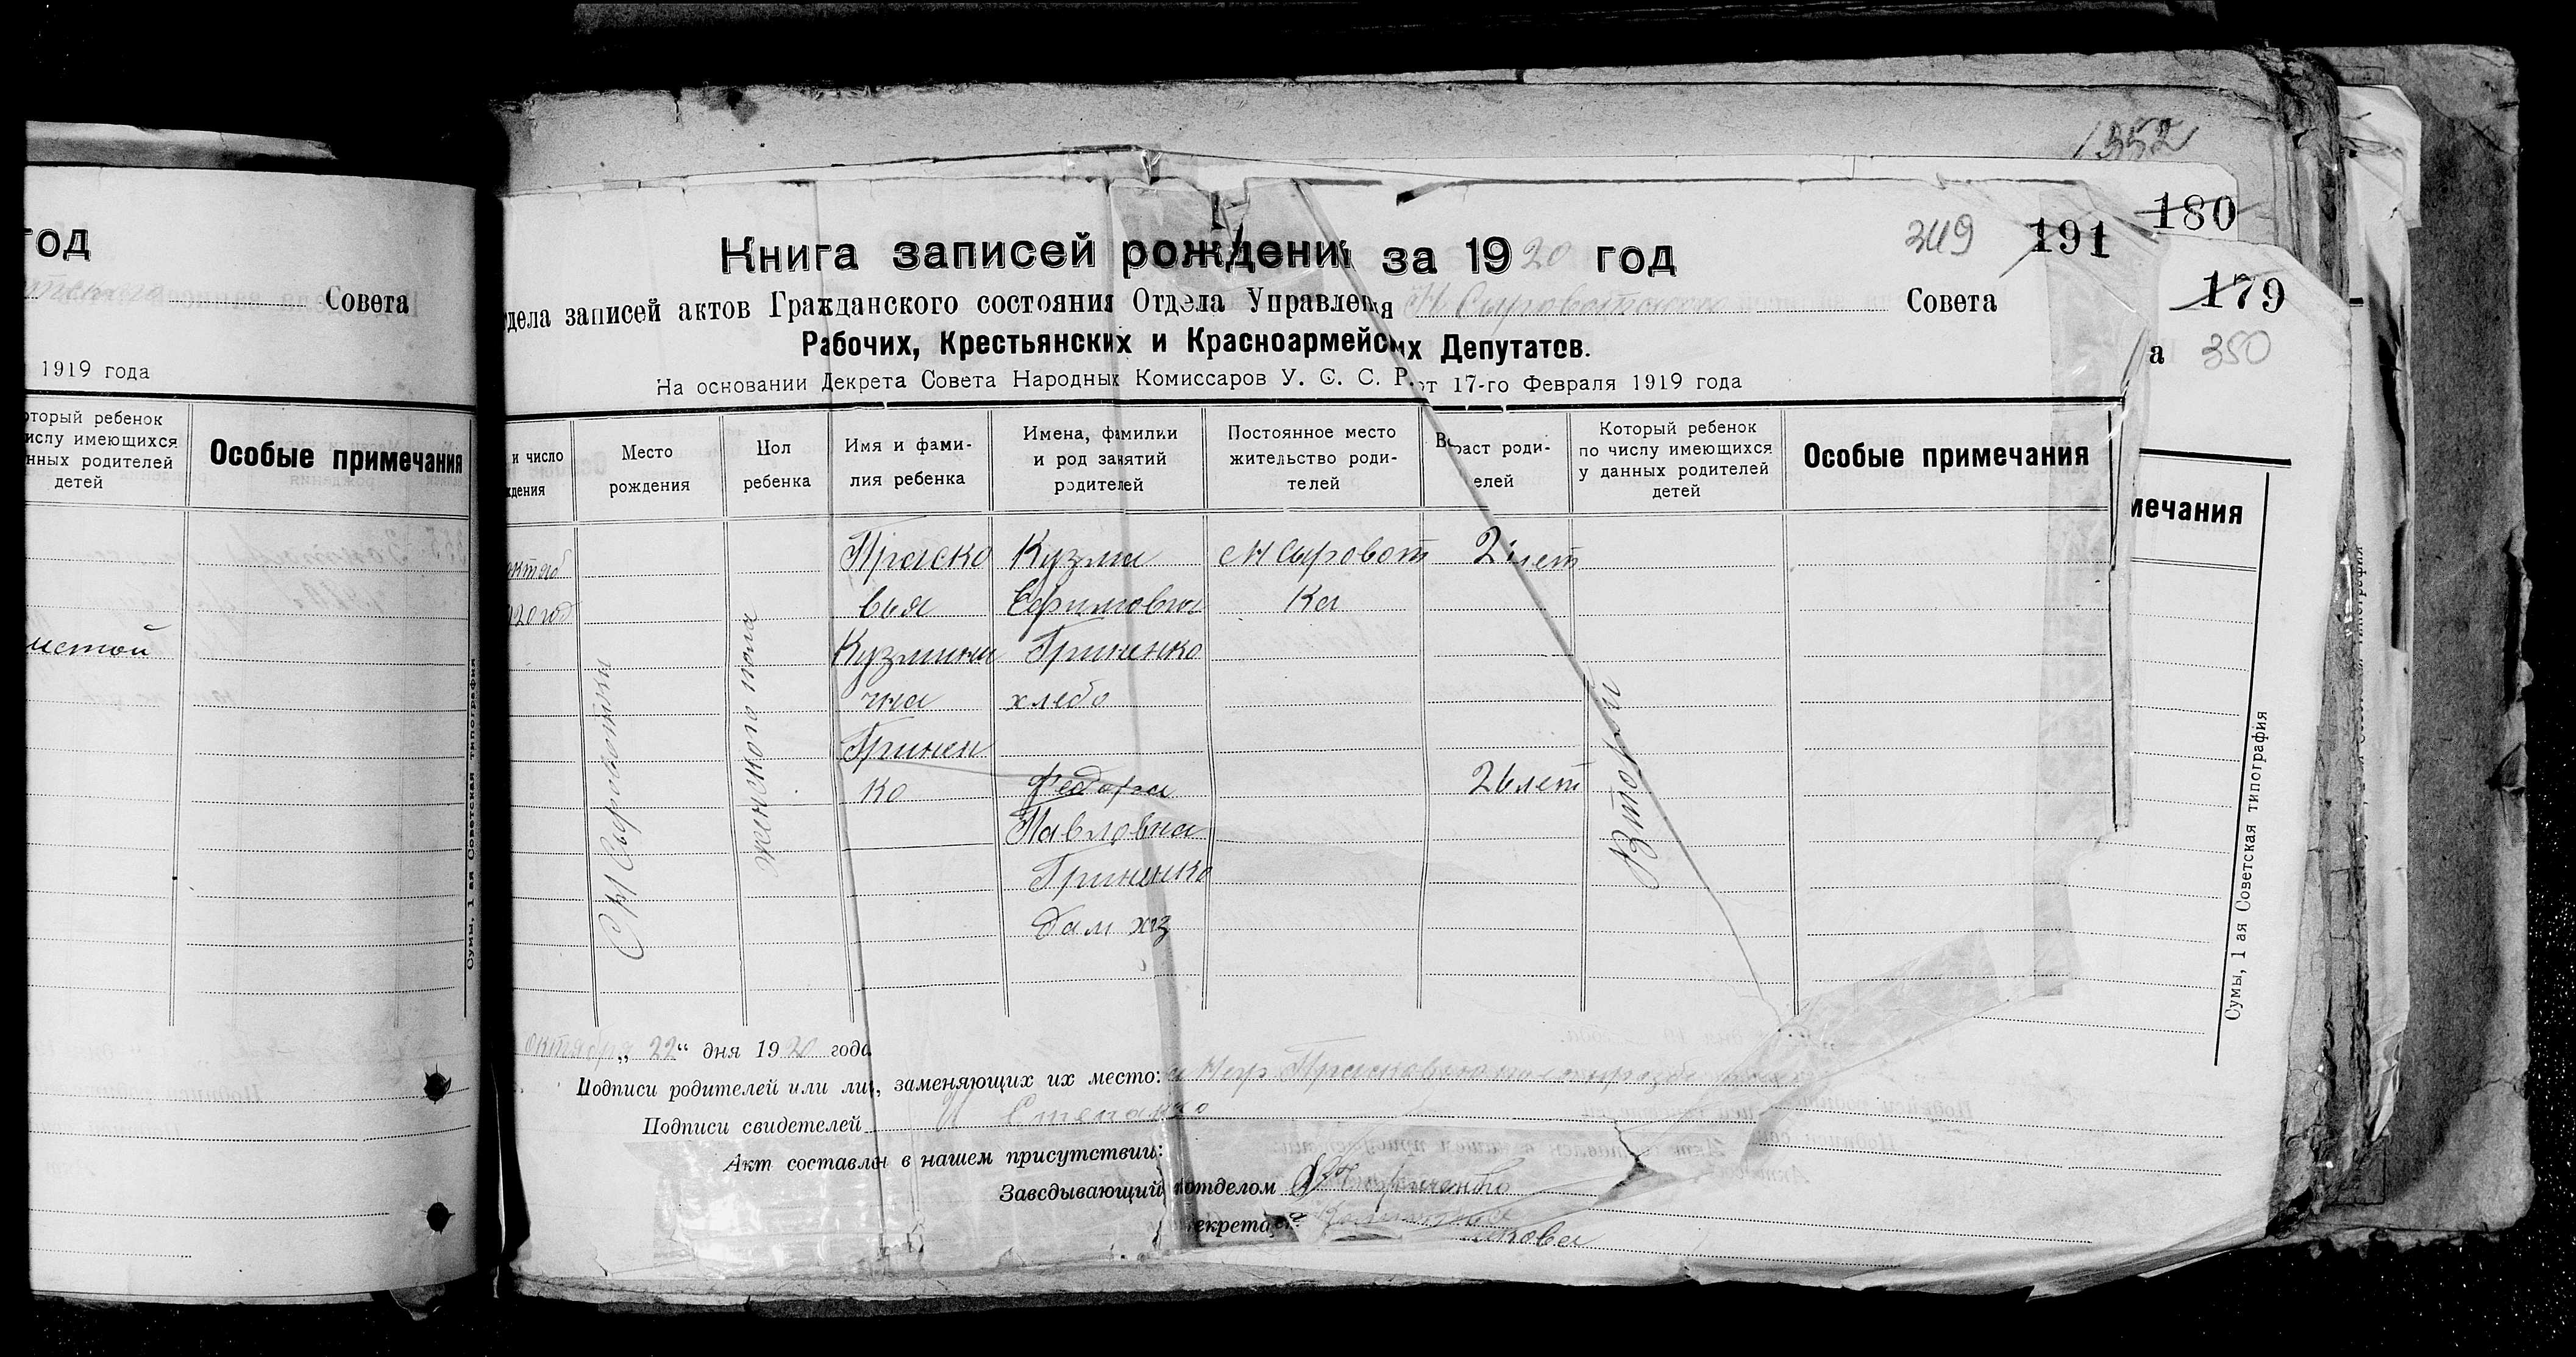 год
Совета
1919 года
оторый ребенок
числу имеющихся
нных родителей
детей
Особые примечания
истой
Сумы, 1 ая Советская типография
1352
180
349 191
179
а 350
Книга записей рождени за 1920 год
дела записей актов Гражданского состояния Отдела Управления Н Сыроватского Совета
Рабочих, Крестьянских и Красноармейских Депутатов.
На основании Декрета Совета Народных Комиссаров У. С. С. Р. от 17-го Февраля 1919 года
и число
ждения
Место
рождения
Пол
ребенка
Имя и фами-
лия ребенка
Имена, фамилии
и род занятий
родителей
Постоянное место
жительство роди-
телей
Возраст роди-
елей
Который ребенок
по числу имеющихся
у данных родителей
детей
Особые примечания
мечания
октяб
920 год
С Н Сыроватки
женского пола
Праско
вия
Кузмини
чна
Гринен
ко
Кузма
Ефимович
Гриненко
хлебо
Федора
Павловна
Гриненко
дам хз
с Н Сыроват
ка
2 лет
26 лет
Второй
Сумы, 1 ая Советская типография
октября „ 22 “ дня 1920 года
Подписи родителей или лиц, заменяющих их место:
Подписи свидетелей Степанко
Акт составлен в нашем присутствии:
Заведывающий отделом
екретарь